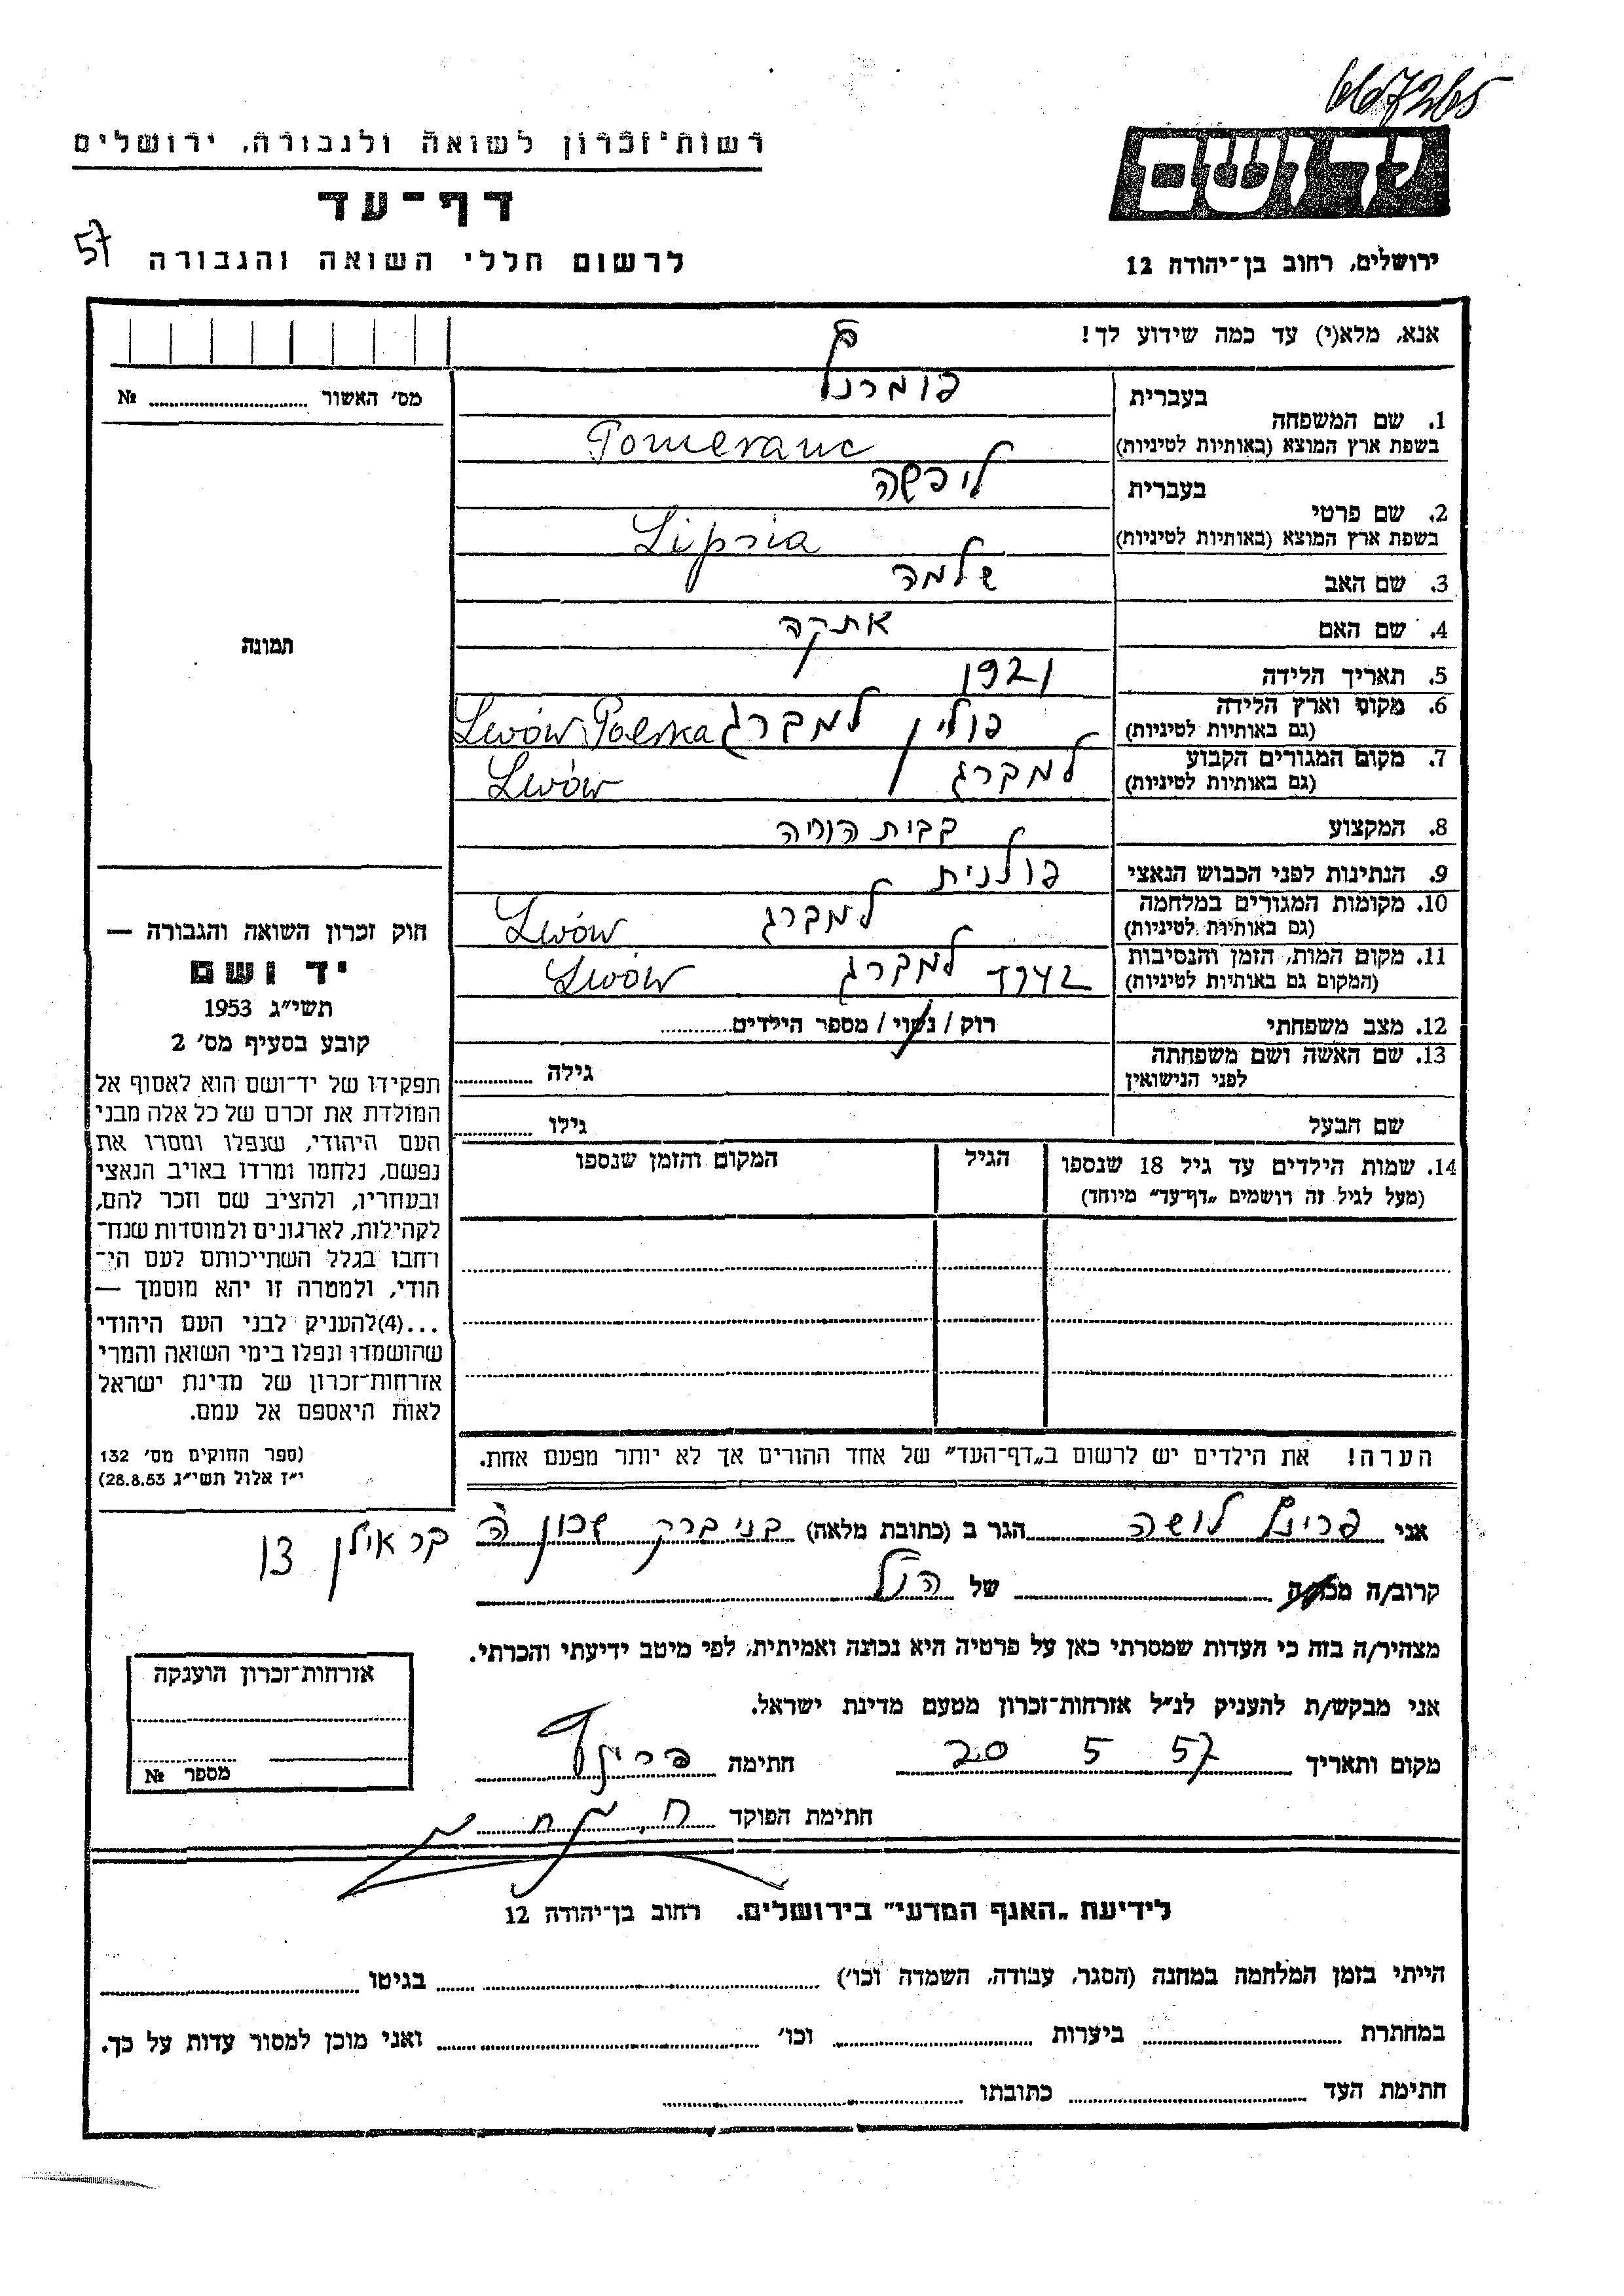 667265
רשות־זכרון לשואה ולגבורה, ירושלים
יד ושם
דף־עד
57
לרשום חללי השואה והגבורה
ירושלים, רחוב בן־יהודה 12
אנא, מלא(י) עד כמה שידוע לך!
מס׳ האשור ........ №
1. שם המשפחה
בעברית פומרנץ
בשפת ארץ המוצא (באותיות לטיניות) Pomeranc
2. שם פרטי
בעברית ליפשה
בשפת ארץ המוצא (באותיות לטיניות) Lipsia
3. שם האב שלמה
4. שם האם אתקה
5. תאריך הלידה 1921
6. מקום וארץ הלידה
(גם באותיות לטיניות) פולין למברג Lwów Polska
7. מקום המגורים הקבוע
(גם באותיות לטיניות) למברג Lwów
8. המקצוע בבית הוריה
9. הנתינות לפני הכבוש הנאצי פולנית
10. מקומות המגורים במלחמה
(גם באותיות לטיניות) למברג Lwów
11. מקום המות, הזמן והנסיבות
(המקום גם באותיות לטיניות) למברג Lwów
12. מצב משפחתי רוק / נשוי / מספר הילדים........
13. שם האשה ושם משפחתה
לפני הנישואין גילה ........
שם הבעל גילו ........
14. שמות הילדים עד גיל 18 שנספו
(מעל לגיל זה רושמים „דף־עד״ מיוחד)
הגיל
המקום והזמן שנספו
תמונה
חוק זכרון השואה והגבורה —
יד ושם
תשי״ג 1953
קובע בסעיף מס׳ 2
תפקידו של יד־ושם הוא לאסוף אל
המולדת את זכרם של כל אלה מבני
העם היהודי, שנפלו ומסרו את
נפשם, נלחמו ומרדו באויב הנאצי
ובעוזריו, ולהציב שם וזכר להם,
לקהילות, לארגונים ולמוסדות שנח־
רחבו בגלל השתייכותם לעם הי־
הודי, ולמטרה זו יהא מוסמך —
...(4)להעניק לבני העם היהודי
שהושמדו ונפלו בימי השואה והמרי
אזרחות־זכרון של מדינת ישראל
לאות היאספם אל עמם.
(ספר החוקים מס׳ 132
י״ז אלול תשי״ג 28.8.53)
הערה! את הילדים יש לרשום ב„דף־העד״ של אחד ההורים אך לא יותר מפעם אחת.
אני לושה הגר ב (כתובת מלאה) בני ברק שכון ה בר אילן
קרוב/ה מכר/ה ........ של הנ״ל
מצהיר/ה בזה כי העדות שמסרתי כאן על פרטיה היא נכונה ואמיתית, לפי מיטב ידיעתי והכרתי.
אני מבקש/ת להעניק לנ״ל אזרחות־זכרון מטעם מדינת ישראל.
מקום ותאריך 20 5 57 חתימה
חתימת הפוקד
אזרחות־זכרון הוענקה
מספר №
לידיעת „האגף המדעי״ בירושלים. רחוב בן־יהודה 12
הייתי בזמן המלחמה במחנה (הסגר, עבודה, השמדה וכו׳) ........ בגיטו ........
במחתרת ........ ביערות ........ וכו׳ ........ ואני מוכן למסור עדות על כך.
חתימת העד ........ כתובתו ........